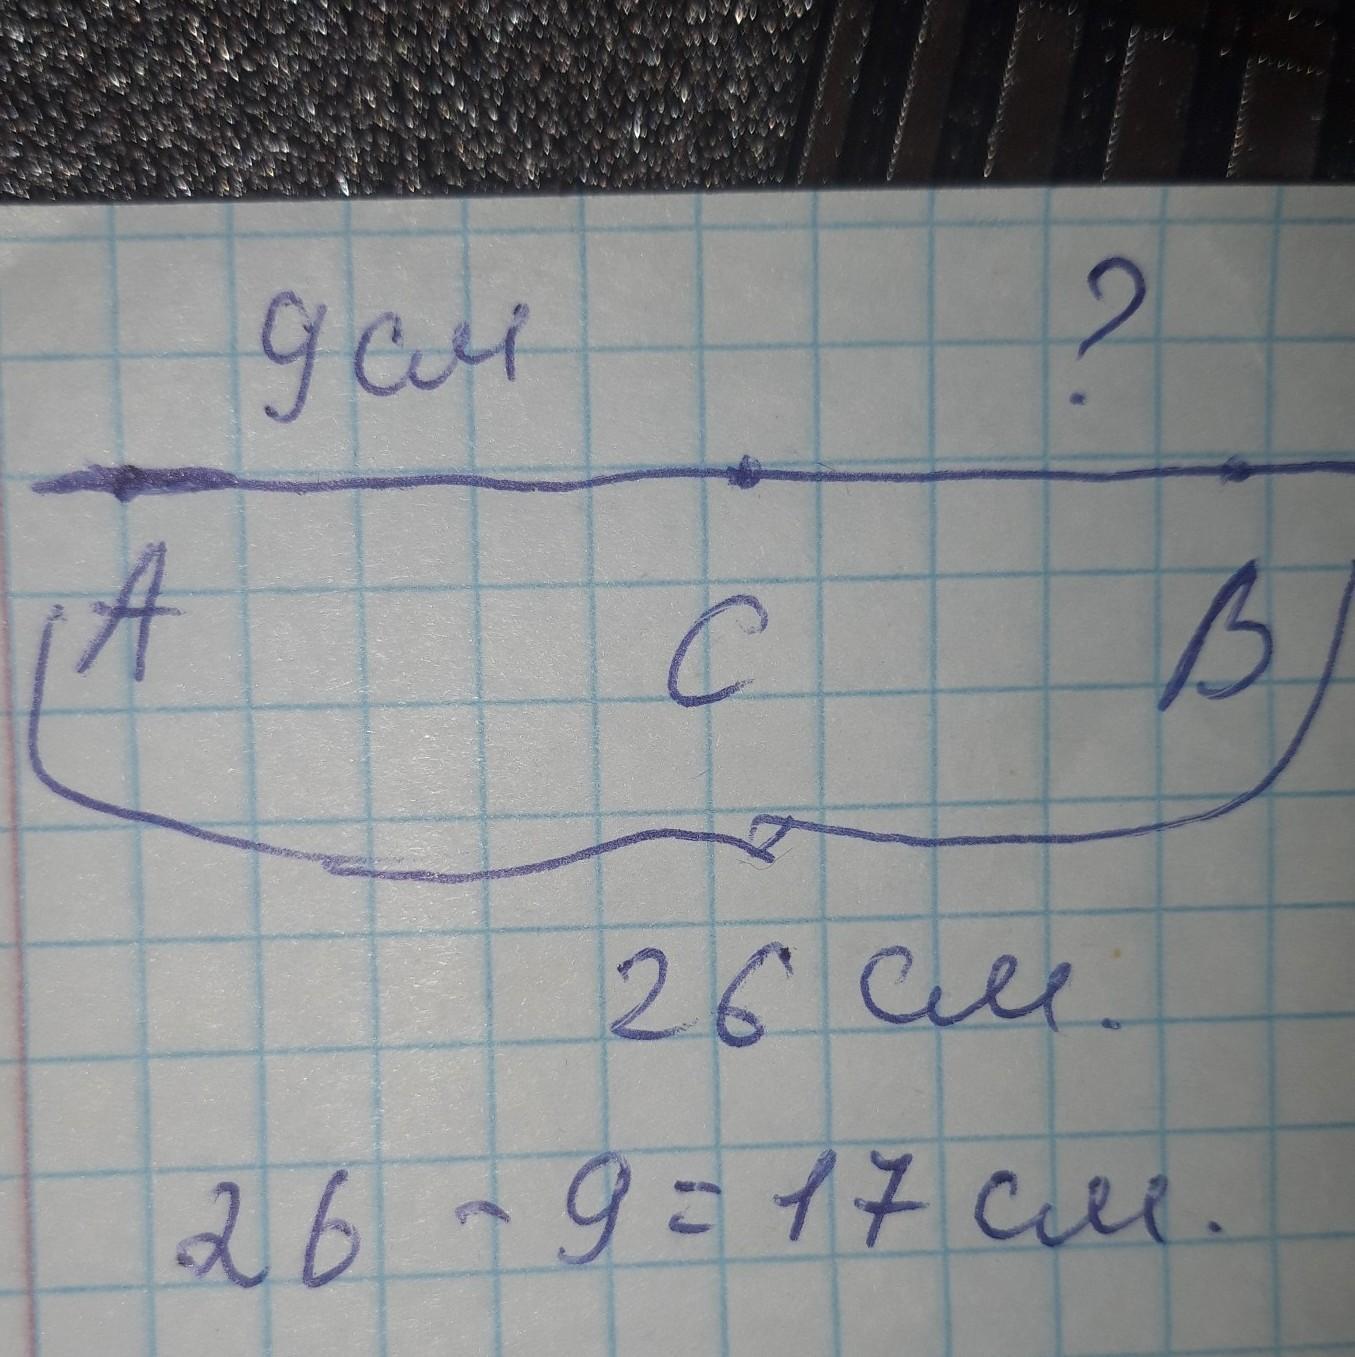 9 см ?
А С В
26 см.
26 - 9 = 17 см.